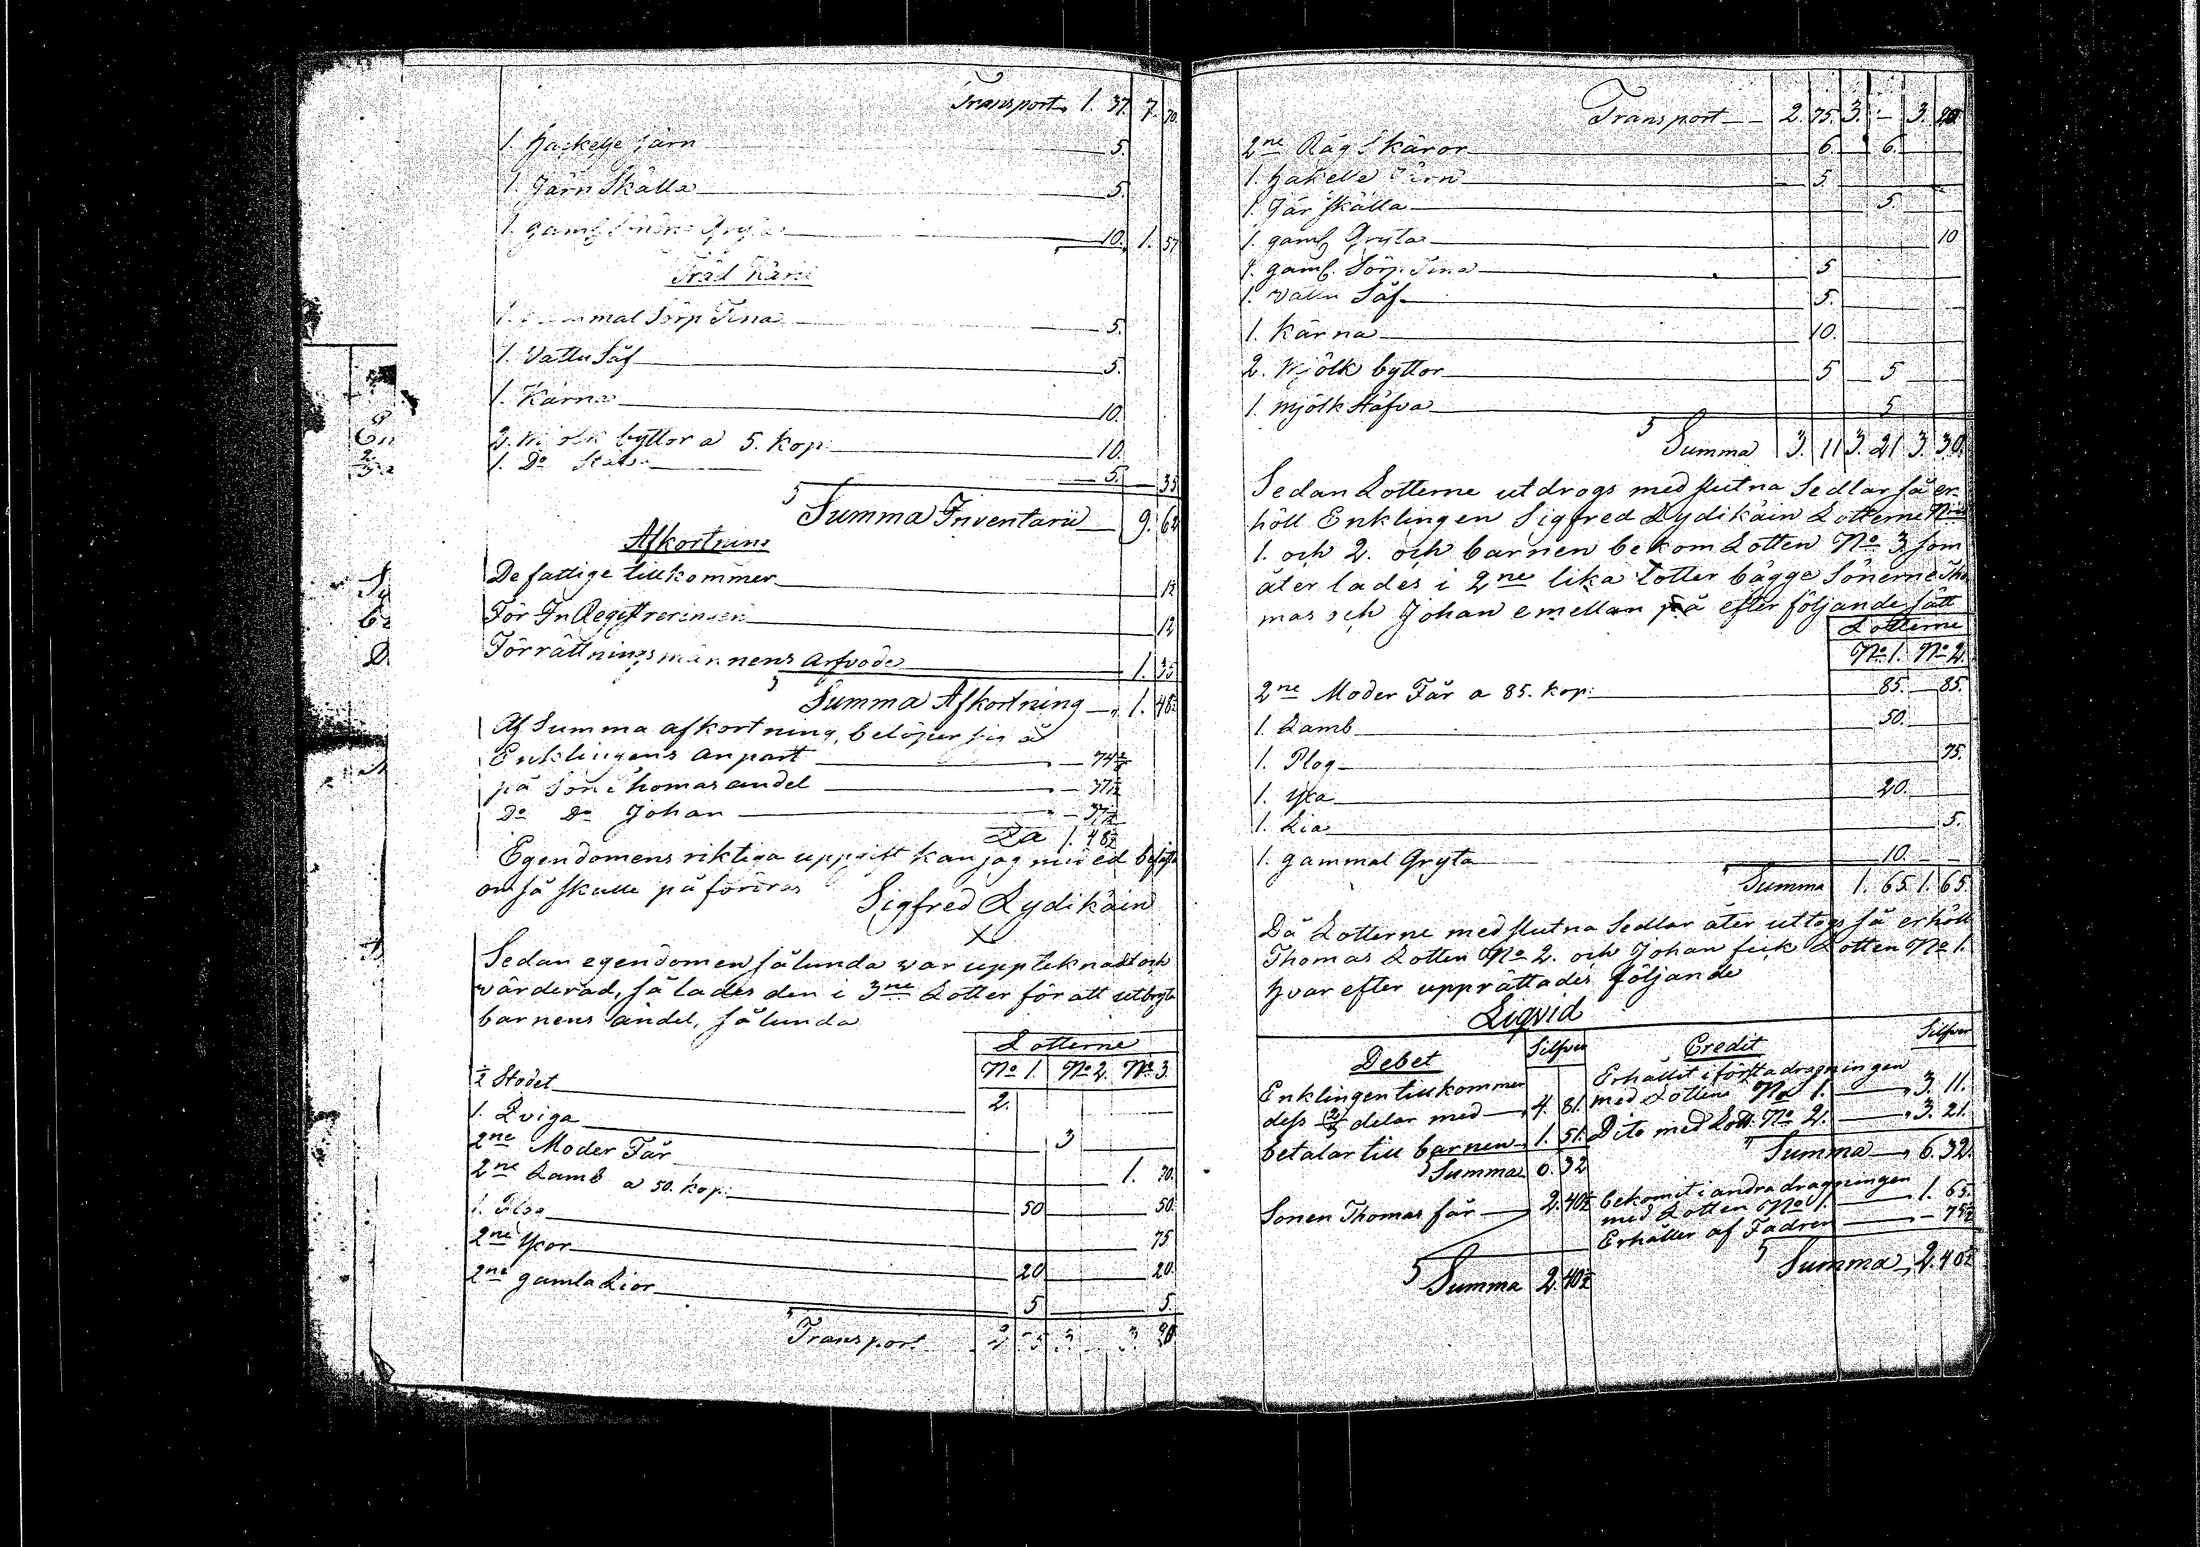 Transport 1. 37. 7. 70.
1. Hackelse Järn 5.
1. Järn Skälla 5.
1. gaml Gryta 10. 1. 57
Träd Käril
1. gammal Sörp Tina 5.
1. Vattu Såf 5.
1. Kärna 10.
2. Mjölk byttor a 5. kop: 10.
1. Do Stäfva 5. 35
Summa Inventarii 9. 62
Afkortning
De fattige tillkommer 12
För InRegistreringen 12
Förrättningsmännens arfvode 1. 35
Summa Afkortning 1. 48½
Af Summa afkortning, belöper sig å
Enklingens anpart 74 2/8
på Son Thomas andel 37½
Do Do Johan 37½
1. 48½
Egendomens riktiga uppgift kan jag med ed
om så skulle påfordras
Sigfred Lydikäin
X
Sedan egendomen sålunda war upptecknadt och
wärderad, så lades den i 3ne Lotter för att utbryta
barnens andel, sålunda
Lotterne
No 1. No 2. No 3
½ Stodet 2.
1. Qviga 3
2ne Moder Får 1. 70.
2ne Lamb a 50. kop: 50 50.
1. Plog 75
2ne Yxor 20 20.
2ne gamla Lior 5 5.
Transport 2 75 3 3. 20
Transport 2. 75. 3. — 3. 20
2ne Råg Skäror 6. 6.
1. Hakelse Järn 5
1. Jär skälla 5.
1. gaml Gryta 10
1. gaml. Sörp Tina 5
1. Vattu Såf 5.
1. Kärna 10.
2. Mjölk byttor 5 5
1. Mjölk Stäfva 5
Summa 3. 11 3. 21 3. 30.
Sedan Lotterne utdrogs med slutna Sedlar så er-
höll Enklingen Sigfred Lydikäin Lotterne
1. och 2. och barnen bekom Lotten No 3. som
åter lades i 2ne lika lotter bägge Sönerne Tho
mas och Johan emellan på efter följande sätt
Lotterne
No 1. No 2.
2ne Moder Får a 85. kop: 85. 85.
1. Lamb 50.
1. Plog 75.
1. Yxa 20.
1. Lia 5.
1. gammal Gryta 10.
Summa 1. 65 1. 65.
Då Lotterne med slutna Sedlar åter uttogs så erhöll
Thomas Lotten No 2. och Johan feck Lotten No 1.
hvar efter upprättades följande
Liqvid
Debet Silfver Credit Silfver
Enklingen tillkommer
dess 2/3 delar med 4. 81.
betalar till barnen 1. 51.
Summa 6. 32
Erhållit i första dragningen
med Lotten No 1. 3. 11.
Dito med Lott. No 2. 3. 21.
Summa 6. 32.
Sonen Thomas får 2. 40½
bekomit i andra dragningen
med Lotten No 1. 1. 65.
Erhåller af Fadren 75½
Summa 2. 40½
Summa 2. 40½